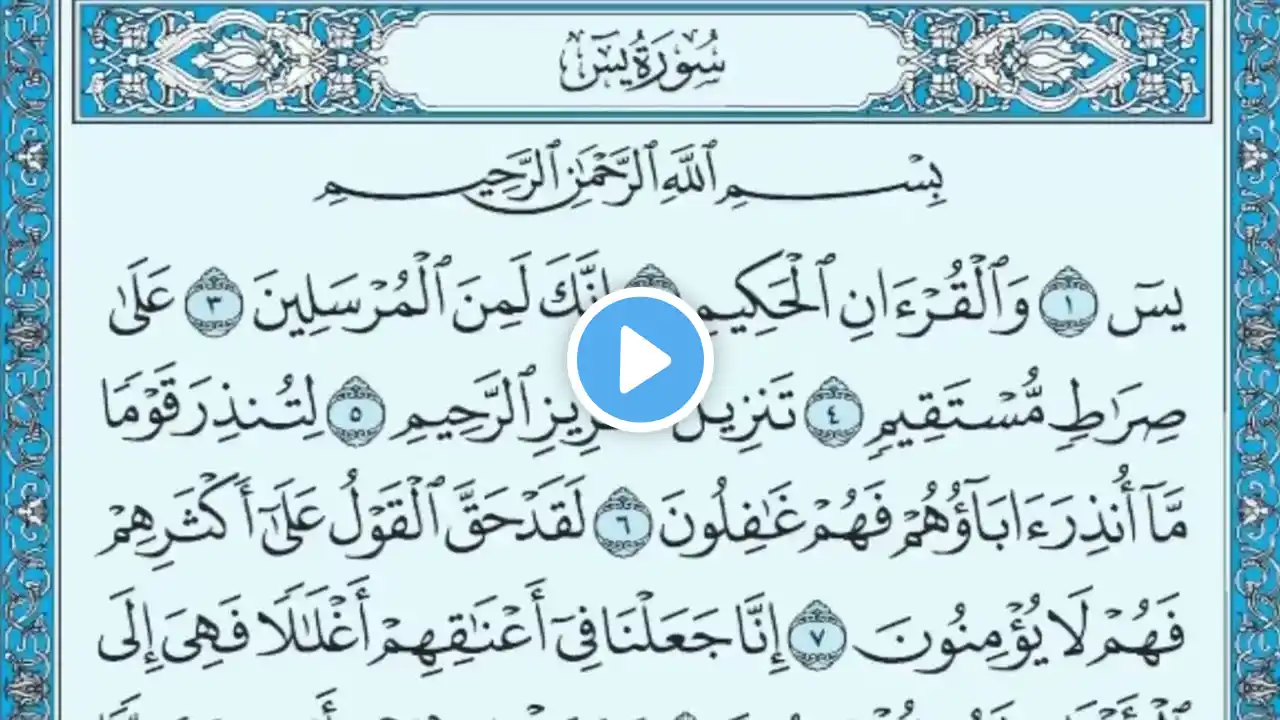 سُورَةُ يسٓ
بِسْمِ ٱللَّهِ ٱلرَّحْمَٰنِ ٱلرَّحِيمِ
يسٓ ١ وَٱلْقُرْءَانِ ٱلْحَكِيمِ إِنَّكَ لَمِنَ ٱلْمُرْسَلِينَ ٣ عَلَىٰ
صِرَٰطٍ مُّسْتَقِيمٍ ٤ تَنزِيلَ ٱلرَّحِيمِ ٥ لِتُنذِرَ قَوْمًا
مَّآ أُنذِرَ ءَابَآؤُهُمْ فَهُمْ غَٰفِلُونَ ٦ لَقَدْ حَقَّ ٱلْقَوْلُ عَلَىٰٓ أَكْثَرِهِمْ
فَهُمْ لَا يُؤْمِنُونَ ٧ إِنَّا جَعَلْنَا فِىٓ أَعْنَٰقِهِمْ أَغْلَٰلًا فَهِىَ إِلَى